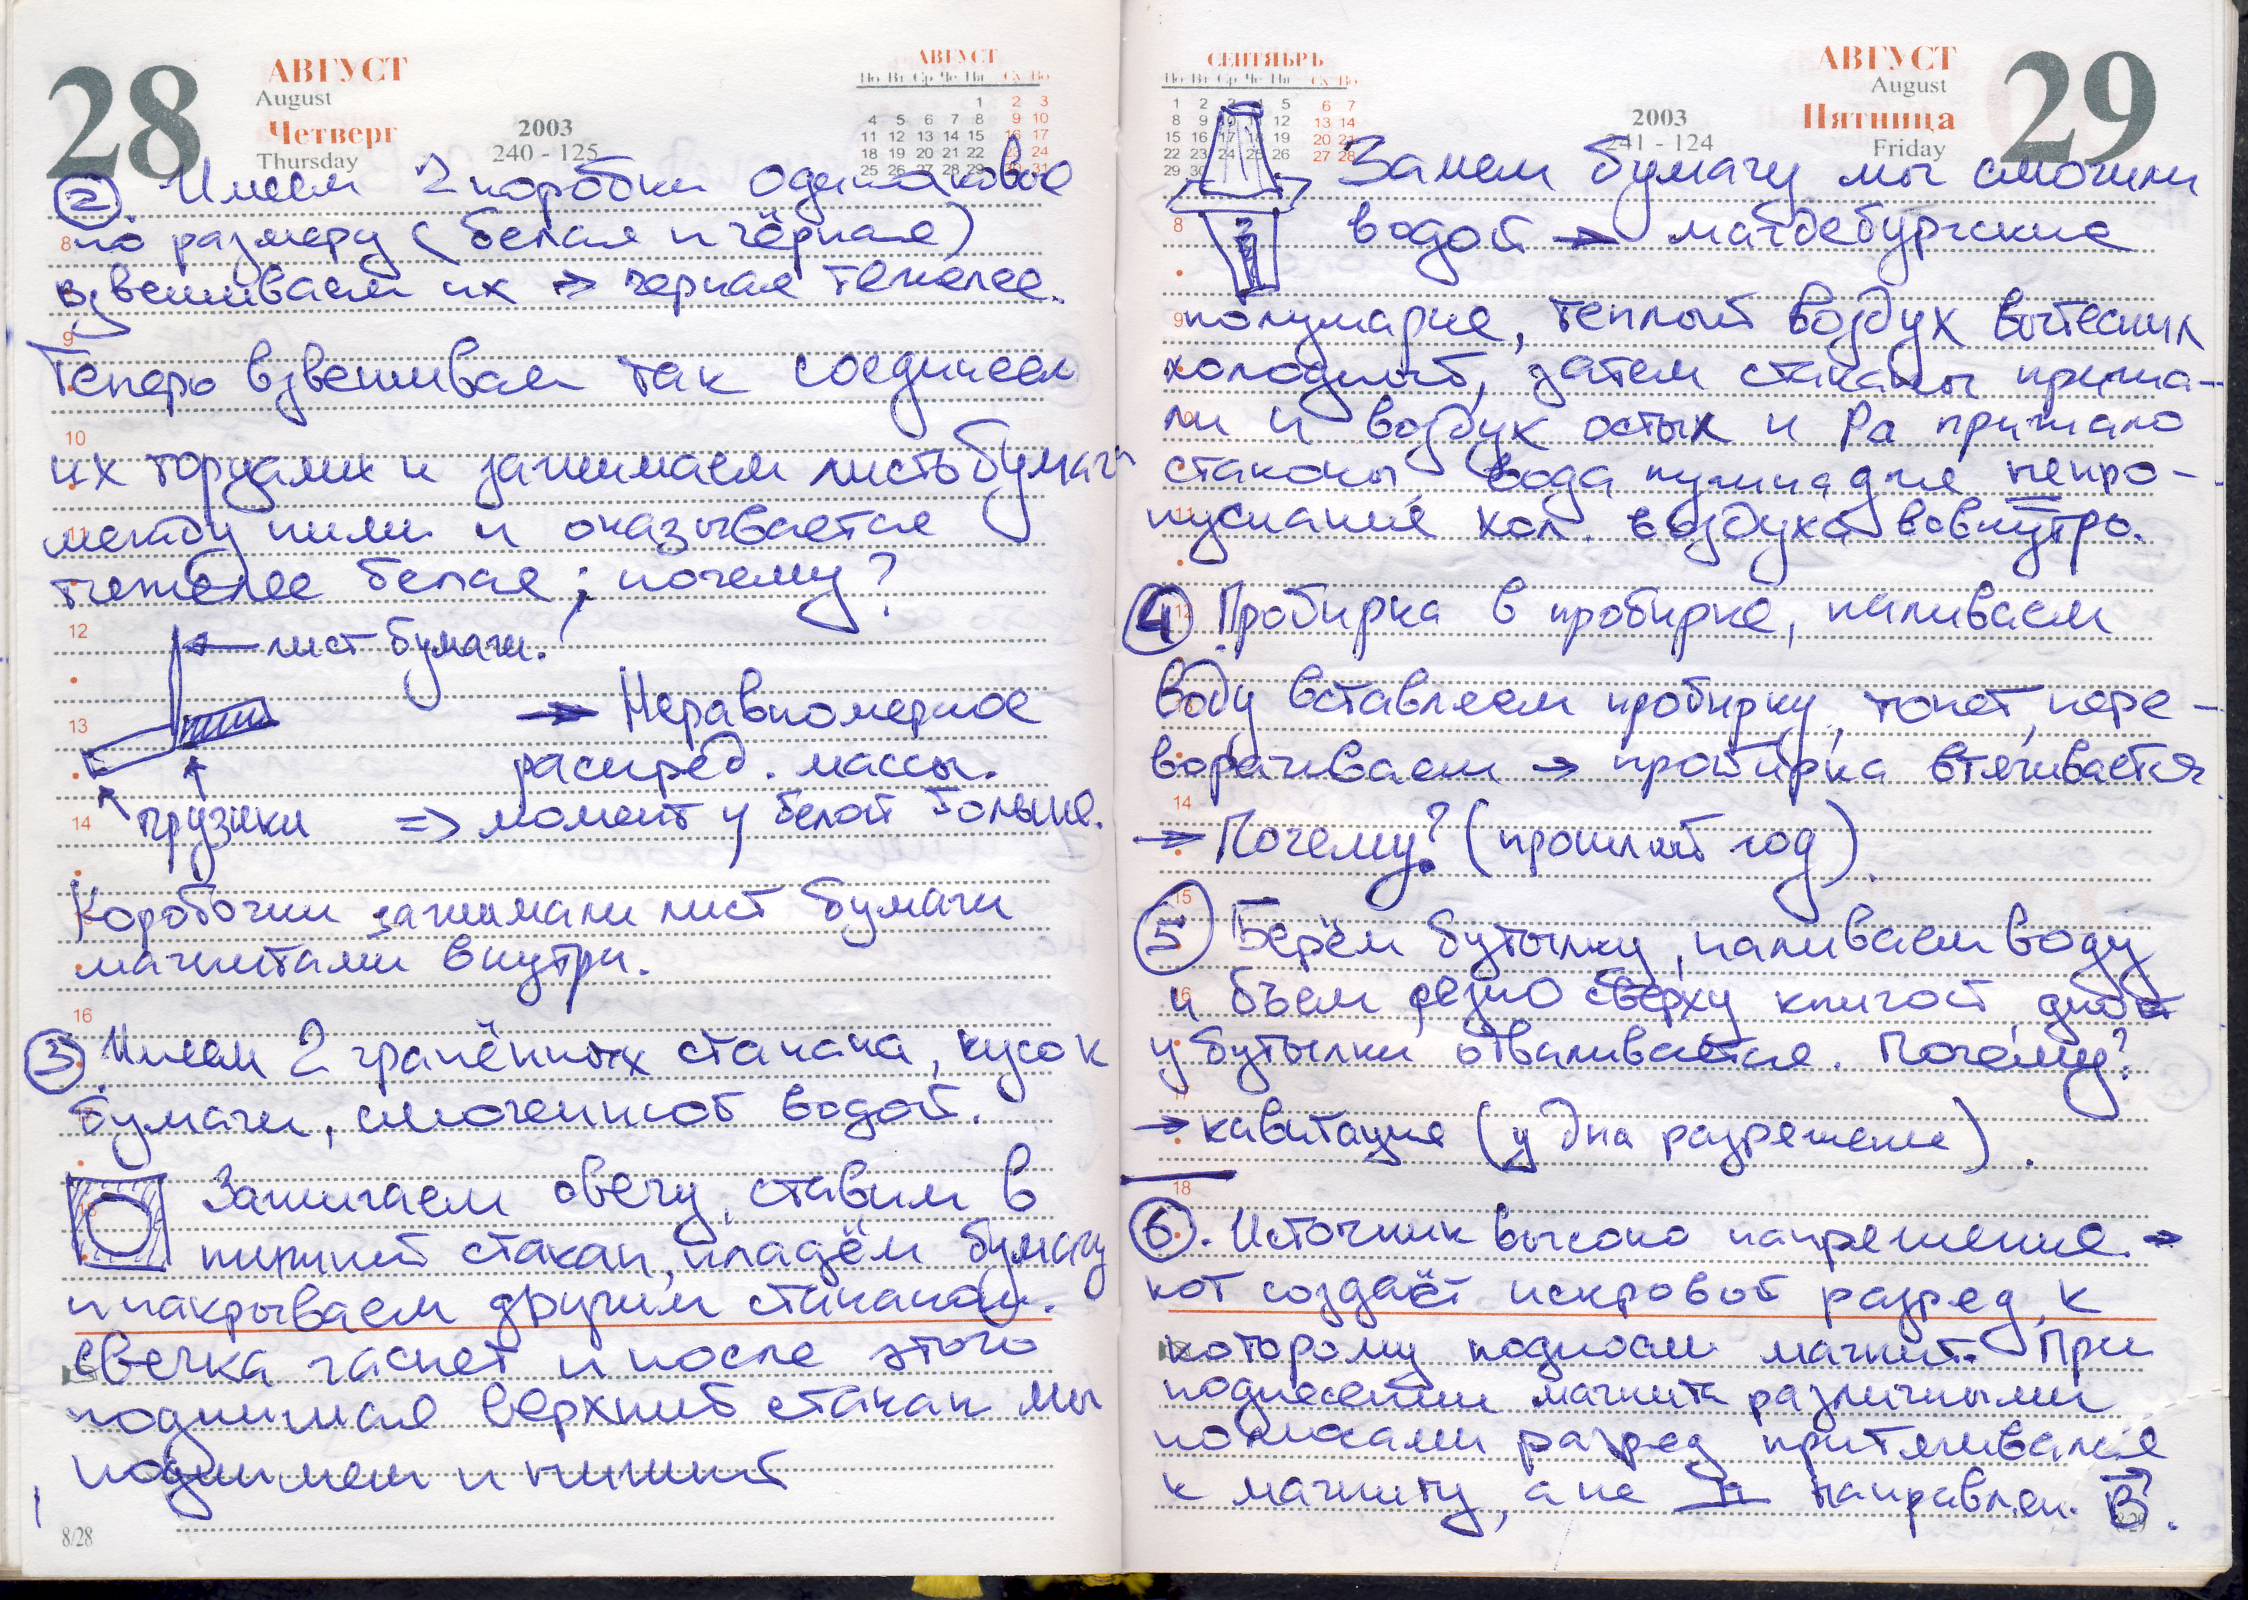 28
АВГУСТ
August
Четверг
Thursday
2003
240 - 125
АВГУСТ
По Вт Ср Че Пя Су Во
1 2 3
4 5 6 7 8 9 10
11 12 13 14 15 16 17
18 19 20 21 22 23 24
25 26 27 28 29 30 31
②. Имеем 2 коробки одинаковые
по размеру (белая и чёрная)
взвешиваем их → черная тяжелее.
Теперь взвешиваем так соединяем
их торцами и зажимаем листь бумаги
между ними и оказывается
тяжелее белая; почему?
лист бумаги.
→ Неравномерное
распред. массы.
грузики => момент у белой больше.
Коробочки зажимали лист бумаги
магнитами внутри.
③. Имеем 2 гранёных стакана, кусок
бумаги, смоченной водой.
Зажигаем свечу, ставим в
нижний стакан, кладём бумагу
и накрываем другим стаканом.
Свечка гаснет и после этого
поднимая верхний стакан мы
поднимем и нижний
8/28
СЕНТЯБРЬ
По Вт Ср Че Пя Су Во
1 2 3 4 5 6 7
8 9 10 12 13 14
15 16 17 18 19 20 21
22 23 24 25 26 27 28
29 30
2003
241 - 124
АВГУСТ
August
Пятница
Friday
29
Затем бумагу мы смочили
водой → магдебургские
полушария, теплый воздух вытеснил
холодный, затем стаканы прижа-
ли и воздух остыл и Pa прижало
стаканы, вода нужна для непро-
пускания хол. воздуха вовнутрь.
④. Пробирка в пробирке, наливаем
воду вставляем пробирку, тонет, пере-
ворачиваем → пробирка втягивается
→ Почему? (прошлый год).
⑤ Берём бутылку, наливаем воду
и бъем резко сверху книгой, дно
у бутылки отваливается. Почему?
→ кавитация (у дна разрежение).
⑥. Источник высоко напряжения →
кот создаёт искровой разряд, к
которому подносим магнит. При
поднесении магнита различными
полюсами разряд притягивался
к магниту, а не направлен. B.